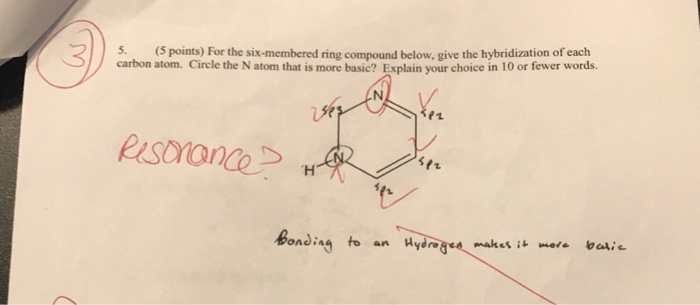 3
5. (5 points) For the six-membered ring compound below, give the hybridization of each
carbon atom. Circle the N atom that is more basic? Explain your choice in 10 or fewer words.
N
sp3
sp2
Resonance?
H-N
sp2
sp2
Bonding to an Hydrogen makes it more basic